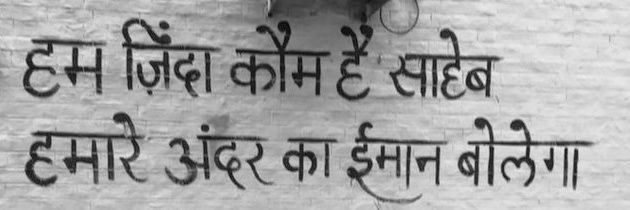 हम ज़िंदा कौम हैं साहेब
हमारे अंदर का ईमान बोलेगा